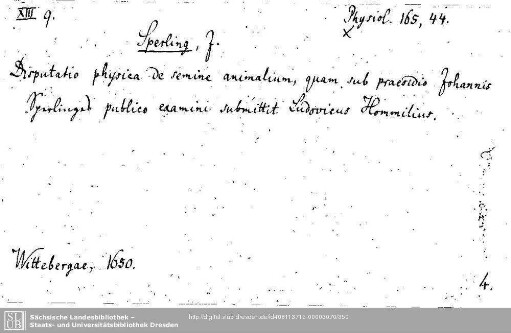 XIII 9.
Physiol. 165, 44.
x
Sperling, J.
Disputatio physica de semine animalium, quam sub praesidio Johannis
Sperlinges publico examini submittit Ludovicus Hommilius.
Wittebergae, 1650.
4.
SLUB
Sächsische Landesbibliothek –
Staats- und Universitätsbibliothek Dresden